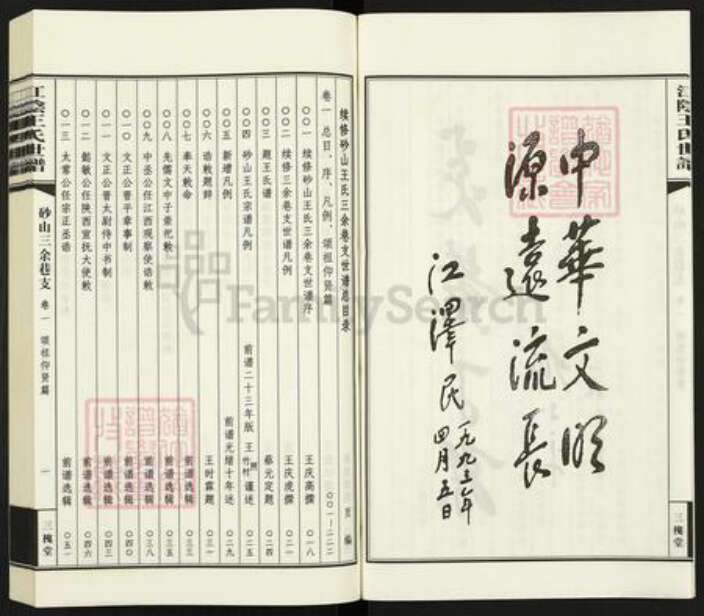 江陰王氏世譜
三槐堂
中華文明
源遠流長
江澤民
一九九三年
四月五日
续修砂山王氏三余巷支世谱总目录
卷一 总目、序、凡例、颂祖仰贤篇 〇〇一-二二二 页编
〇〇一 续修砂山王氏三余巷支世谱序 王庆高撰 〇一八
〇〇二 续修三余巷支世谱凡例 王庆虎撰 〇二〇
〇〇三 题王氏谱 蔡元定题 〇二四
〇〇四 砂山王氏宗谱凡例 前谱二十三年版 王竹村 谨述 〇二五
〇〇五 新增凡例 前谱光绪十年述 〇二九
〇〇六 诰敕题辞 王时霖题 〇三一
〇〇七 奉天敕命 前谱选辑 〇三三
〇〇八 先儒文中子崇祀敕 前谱选辑 〇三五
〇〇九 中丞公任江西观察使诰敕 前谱选辑 〇三八
〇一〇 文正公晋平章事制 前谱选辑 〇四〇
〇一一 文正公晋太尉侍中书制 前谱选辑 〇四三
〇一二 懿敏公任陕西宣抚大使敕 前谱选辑 〇四六
〇一三 太常公任宗正丞诰 前谱选辑 〇五一
江陰王氏世譜
砂山三余巷支 卷一 颂祖仰贤篇
一
三槐堂
FamilySearch